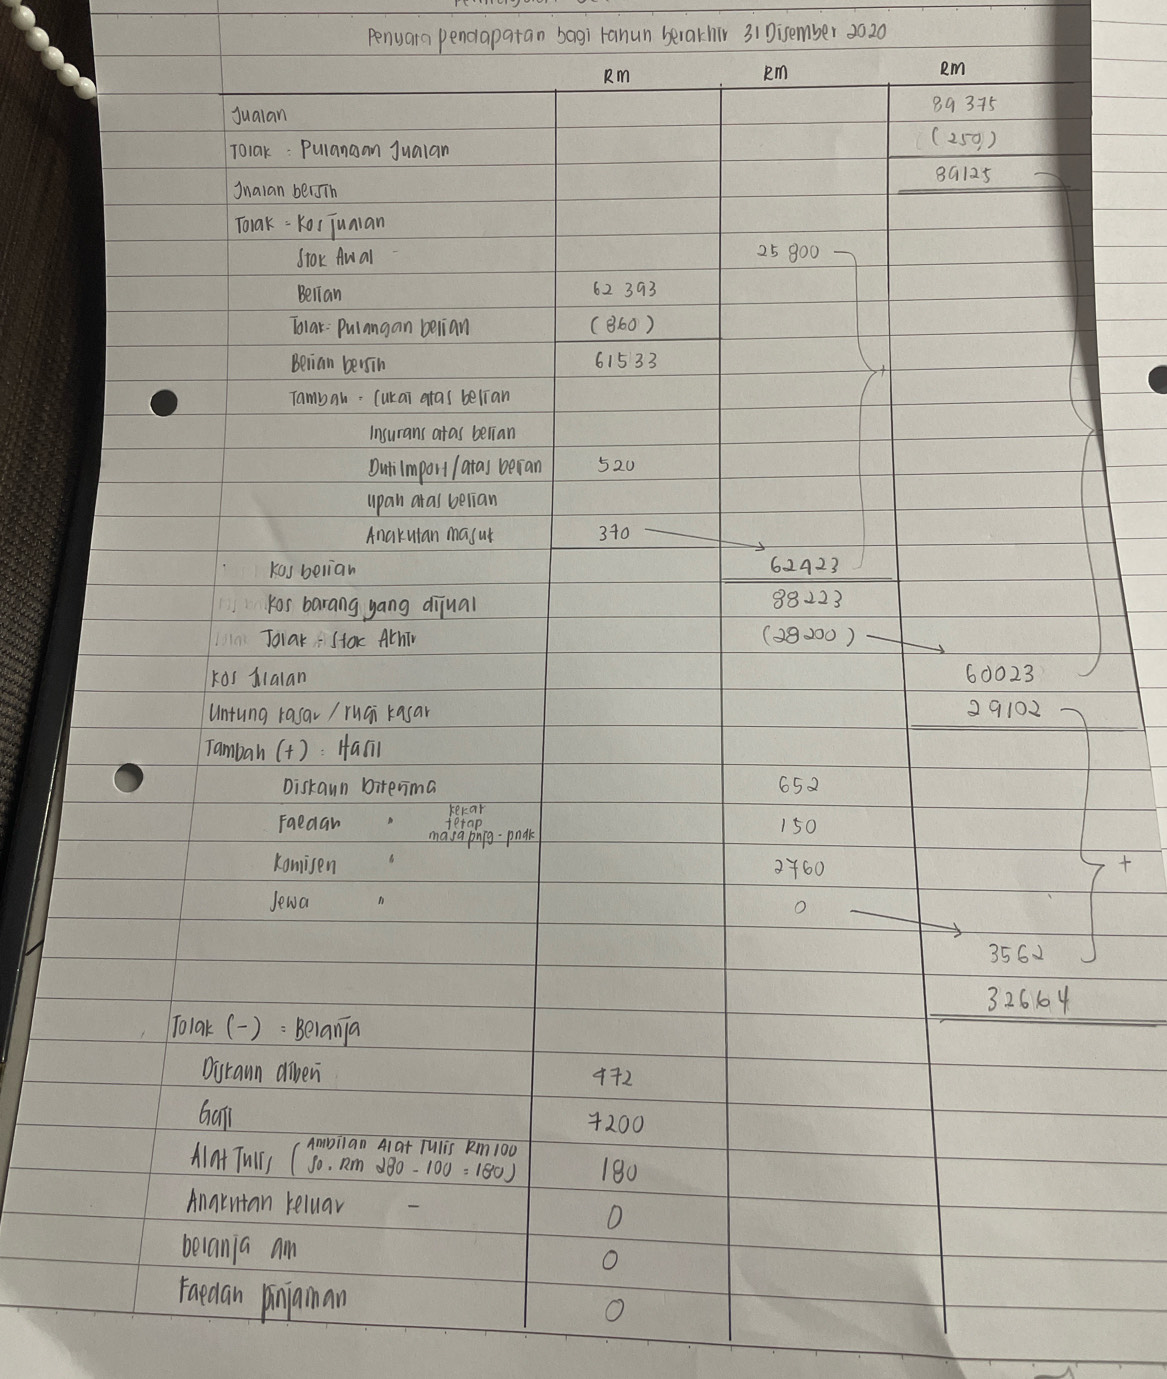 Penyata pendapatan bagi tahun berakhir 31 Disember 2020
RM RM RM
Jualan 89 375
Tolak : Pulangan Jualan (250)
Jualan bersih 89125
Tolak = Kos jualan
Stok Awal 25 800
Belian 62 393
Tolak: Pulangan belian (860)
Belian bersih 61533
+
Tambah : Cukai atas belian
Insurans atas belian
Duti Import/atas belian 520
upah atas belian
Angkutan masuk 370
Kos belian 62423
Kos barang yang dijual 88223
Tolak : Stok Akhir (28200)
Kos Jualan 60023
Untung kasar / rugi kasar 29102
Tambah (+) : Hasil
Diskaun Diterima 652
Faedah " tetap 150
Komisen " 2760
+
Sewa " 0
3562
32664
Tolak (-) : Belanja
Diskaun diberi 472
Gaji 7200
Alat Tulis (Ambilan Alat Tulis RM100
So. RM 280 - 100 = 180) 180
Angkutan keluar - 0
belanja am 0
Faedah pinjaman 0